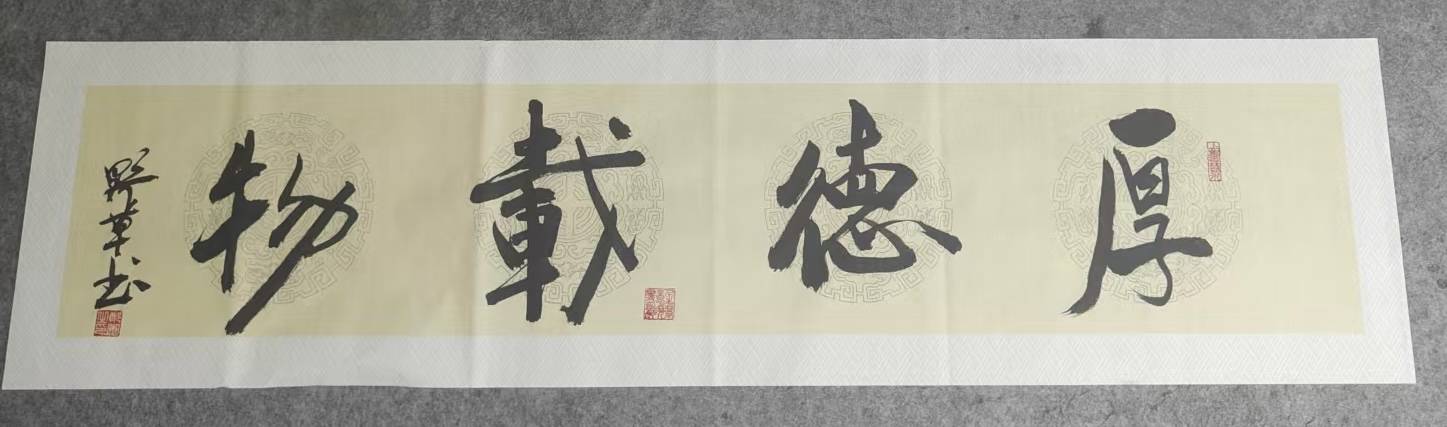 厚德載物
野草书